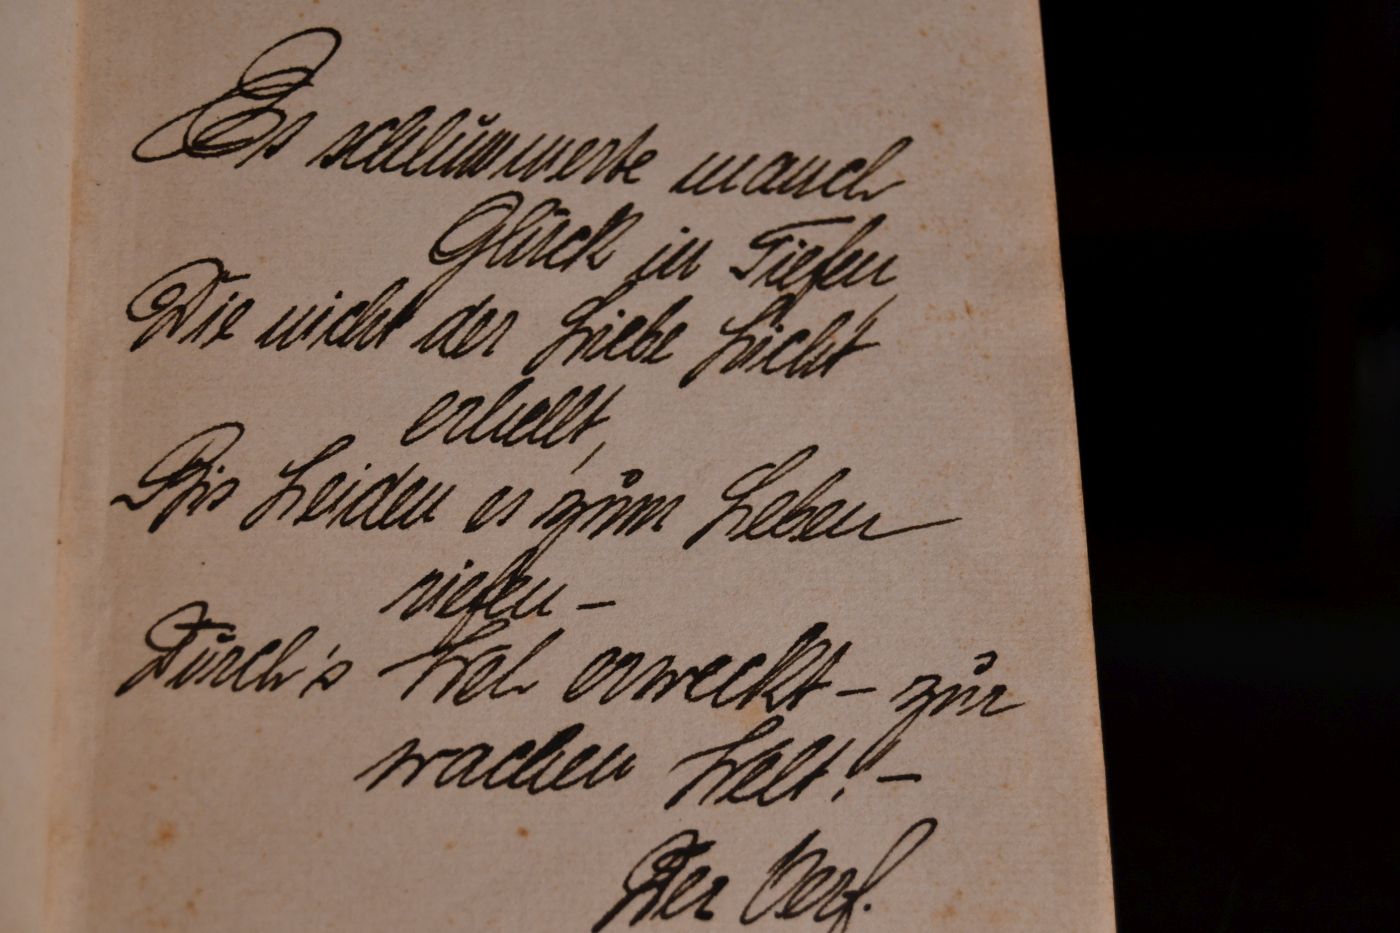 Es schlummerte manch
Glück in Tiefen
Die nicht der Liebe Licht
erhellt,
Bis Leiden es zum Leben
riefen –
Durch's Weh erweckt – zur
wachen Welt! –
Der Verf.